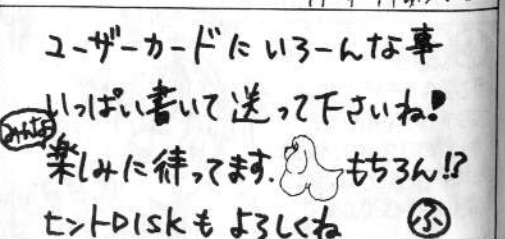 ユーザーカードにいろーんな事
いっぱい書いて送って下さいね!
みんな
楽しみに待ってます. もちろん!?
ヒントDISKもよろしくね ふ